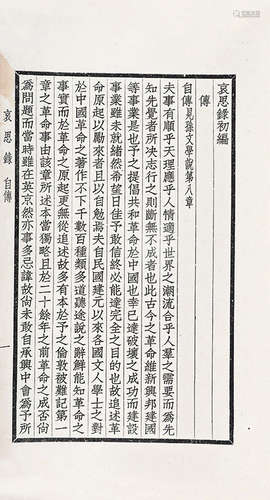 哀思錄初編
傳
自傳見孫文學說第八章
夫事有順乎天理應乎人情適乎世界之潮流合乎人羣之需要而爲先
知先覺者所決志行之則斷無不成者也此古今之革命維新興邦建國
等事業是也予之提倡共和革命於中國也幸已達破壞之成功而建設
事業雖未就緒然希望日佳予敢信終必能達完全之目的也故追述革
命原起以勵來者且以自勉焉夫自民國建元以來各國文人學士之對
於中國革命之著作不下千數百種類多道聽途說之辭鮮能知革命之
事實而於革命之原起更無從追述故多有本於予之倫敦被難記第一
章之革命事由該章所述本甚簡略且於二十餘年之前革命之成否尚
爲問題而當時雖在英京然亦事多忌諱故尚未敢自承興中會爲予所
哀思錄 自傳